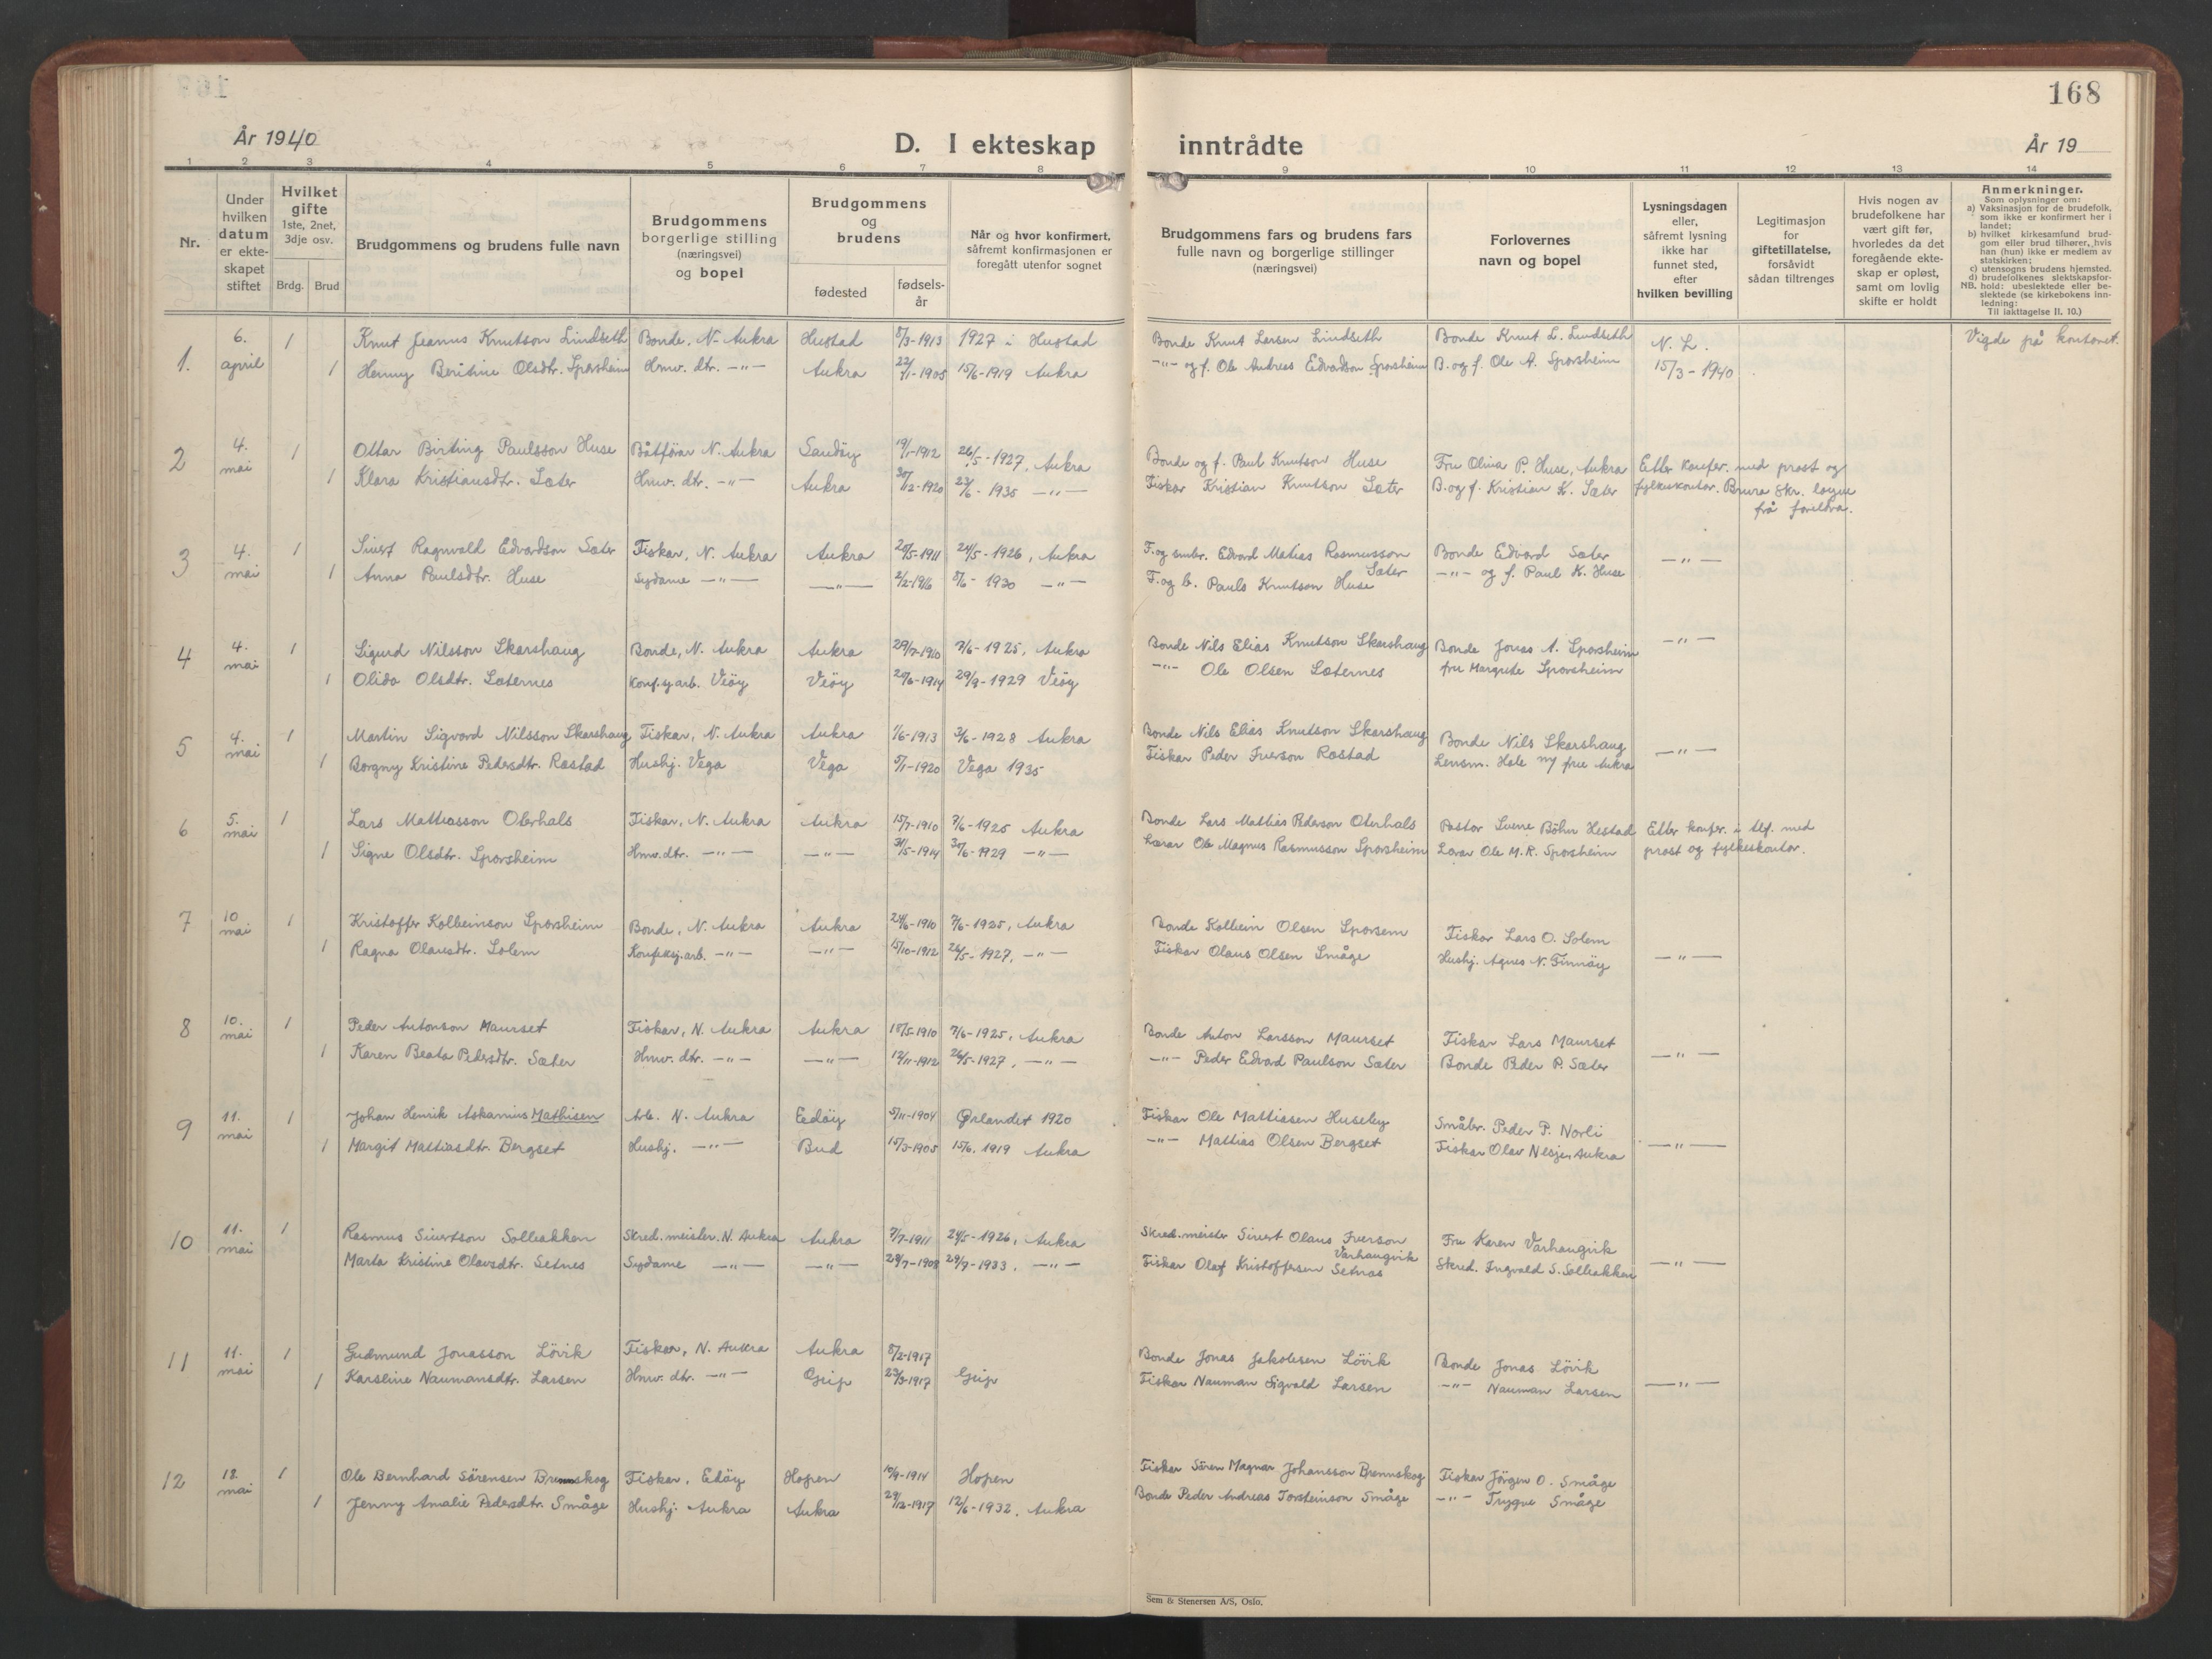 168
År 1940
D. I ekteskap inntrådte
År 19
1 2 3 4 5 6 7 8 9 10 11 12 13 14
Nr.
Under
hvilken
datum
er ekte-
skapet
stiftet
Hvilket
gifte
1ste, 2net,
3dje osv.
Brdg. Brud
Brudgommens og brudens fulle navn
Brudgommens
borgerlige stilling
(næringsvei)
og bopel
Brudgommens
og
brudens
fødested
fødsels-
år
Når og hvor konfirmert,
såfremt konfirmasjonen er
foregått utenfor sognet
Brudgommens fars og brudens fars
fulle navn og borgerlige stillinger
(næringsvei)
Forlovernes
navn og bopel
Lysningsdagen
eller,
såfremt lysning
ikke har
funnet sted,
efter
hvilken bevilling
Legitimasjon
for
giftetillatelse,
forsåvidt
sådan tiltrenges
Hvis nogen av
brudefolkene har
vært gift før,
hvorledes da det
foregående ekte-
skap er opløst,
samt om lovlig
skifte er holdt
Anmerkninger.
Som oplysninger om:
a) Vaksinasjon for de brudefolk,
som ikke er konfirmert her i
landet;
b) hvilket kirkesamfund brud-
gom eller brud tilhører, hvis
han (hun) ikke er medlem av
statskirken;
c) utensogns brudens hjemsted.
d) brudefolkenes slektskapsfor-
NB. hold: ubeslektede eller be-
slektede (se kirkebokens inn-
ledning:
Til iakttagelse II. 10.)
1. 6. april 1 Knut Jeanus Knutson Lindseth Bonde, N. Aukra Hustad 8/3-1913 1927 i Hustad Bonde Knut Larsen Lindseth Bonde Knut L. Lindseth N. L. Vigde på kontoret.
1 Henny Beritine Olsdtr. Sporsheim Hmv. dtr. —"— Aukra 22/1-1905 15/6-1919 Aukra —"— og f. Ole Andreas Edvardson Sporsheim B. og f. Ole A. Sporsheim 15/3-1940
2 4. mai 1 Ottar Birting Paulsson Huse Båtförar N. Aukra Sandöy 19/1-1912 26/5-1927, Aukra Bonde og f. Paul Knutson Huse Fru Olina P. Huse, Aukra Etter konfer. med prost og
1 Klara Kristiansdtr. Sæter Hmv. dtr. —"— Aukra 30/12-1920 23/6-1935 —"— Fiskar Kristian Knutson Sæter B. og f. Kristian K. Sæter fylkeskontor. Brura skr. løyve
frå foreldra.
3 4. mai 1 Sivert Ragnvald Edvardson Sæter Fiskar, N. Aukra Aukra 29/5-1911 24/5-1926, Aukra F. og smbr. Edvard Matias Rasmusson Sæter Bonde Edvard Sæter —"—
1 Anna Paulsdtr. Huse Sydame —"— —"— 2/2-1916 8/6-1930 —"— F. og b. Pauls Knutson Huse —"— og f. Paul K. Huse
4 4. mai 1 Sigurd Nilsson Skarshaug Bonde, N. Aukra Aukra 29/7-1910 7/6-1925, Aukra Bonde Nils Elias Knutson Skarshaug Bonde Jonas A. Sporsheim —"—
1 Olida Olsdtr. Sæternes Konf.syarb. Veöy Veöy 29/6-1914 29/9-1929 Veöy —"— Ole Olsen Sæternes fru Margrete Sporsheim
5 4. mai 1 Martin Sigvard Nilsson Skarshaug Fiskar, N. Aukra Aukra 1/6-1913 3/6-1928 Aukra Bonde Nils Elias Knutson Skarshaug Bonde Nils Skarshaug —"—
1 Borgny Kristine Pedersdtr. Rostad Hushj. Vega Vega 5/1-1920 Vega 1935 Fiskar Peder Iverson Rostad Lensm. Hole m/ frue Aukra
6 5. mai 1 Lars Mattiasson Oterhals Fiskar, N. Aukra Aukra 15/7-1910 7/6-1925 Aukra Bonde Lars Mattias Pederson Oterhals Pastor Sverre Böhn Hestad Etter konfer. i tlf. med
1 Signe Olsdtr. Sporsheim Hmv. dtr. —"— —"— 31/5-1914 30/6-1929 —"— Lærar Ole Magnus Rasmusson Sporsheim Lærar Ole M. R. Sporsheim prost og fylkeskontor.
7 10 mai 1 Kristoffer Kolbeinson Sporsheim Bonde, N. Aukra Aukra 24/6-1910 7/6-1925, Aukra Bonde Kolbein Olsen Sporsem Fiskar Lars O. Solem
1 Ragna Olausdtr. Solem Konfeksj.arb. —"— —"— 15/10-1912 26/5-1927, —"— Fiskar Olaus Olsen Småge Hushj. Agnes N. Finnöy —"—
8 10. mai 1 Peder Antonson Maurset Fiskar, N. Aukra Aukra 18/5-1910 7/6-1925, Aukra Bonde Anton Larsson Maurset Fiskar Lars Maurset
1 Karen Beata Pedersdtr. Sæter Hmv. dtr. —"— —"— 12/11-1912 26/5-1927, —"— —"— Peder Edvard Paulson Sæter Bonde Peder P. Sæter —"—
9 11. mai 1 Johan Henrik Askanius Mathisen Arb. N. Aukra Edöy 5/11-1904 Ørlandet 1920 Fiskar Ole Mattiasen Huseby Småbr. Peder P. Norli
1 Margit Mattiasdtr. Bergset Hushj. —"— Bud 15/3-1905 15/6. 1919 Aukra —"— Mattias Olsen Bergset Fiskar Olav Nesje, Aukra —"—
10 11. mai 1 Rasmus Sivertson Solbakken Skred.meister. N. Aukra Aukra 7/7-1911 24/5-1926, Aukra Skred.meister Sivert Olaus Iverson Varhaugvik Fru Karen Varhaugvik
1 Marta Kristine Olavsdtr. Setnes Sydame —"— —"— 29/7-1908 29/9-1933. —"— Fiskar Olaf Kristoffersen Setnas Skred. Ingvald S. Solbakken —"—
11 11. mai 1 Gudmund Jonasson Lövik Fiskar, N. Aukra Aukra 8/2-1917 Bonde Jonas Jakobsen Lövik Bonde Jonas Lövik
1 Karsline Naumansdtr. Larsen Hmv. dtr. —"— Grip 23/3-1917 Grip Fiskar Nauman Sigvald Larsen —"— Nauman Larsen —"—
12 12 mai 1 Ole Bernhard Sörensen Brennskog Fiskar, Edöy Hopen 10/9-1914 Hopen Fiskar Sören Magnar Johansson Brennskog Fiskar Jörgen O. Småge
1 Jenny Amalie Pedersdtr. Småge Hushj. Aukra Aukra 29/12-1917 12/6-1932. Aukra Bonde Peder Andreas Torsteinson Småge —"— Trygve Småge
Sem & Stenersen A/S, Oslo.